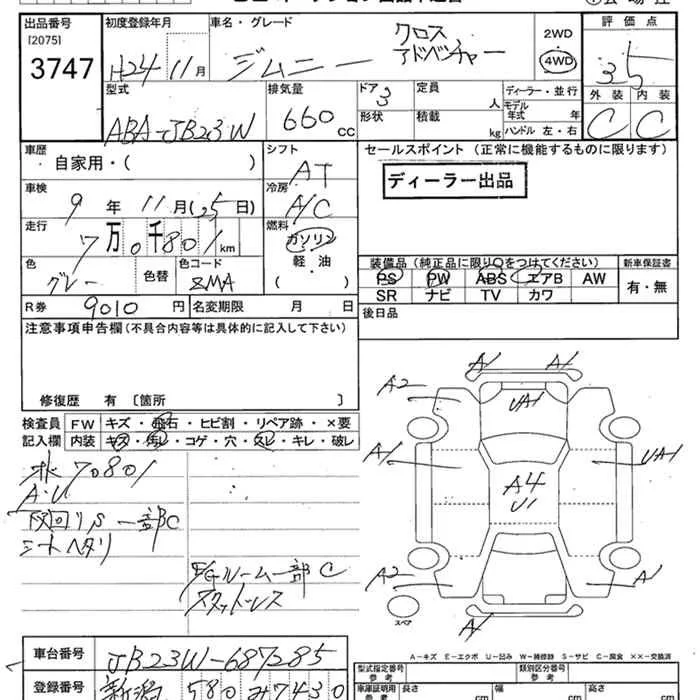 出品番号
[2075]
3747
初度登録年月
H24 11月
車名・グレード
ジムニー
クロス
アドベンチャー
2WD
4WD
評価点
3.5
外装 内装
C C
型式
ABA-JB23W
排気量
660 cc
ドア
3
形状
定員
人
積載
kg
ディーラー・並行
モデル
年式 年
ハンドル 左・右
車歴
自家用・( )
シフト
AT
セールスポイント (正常に機能するものに限ります)
ディーラー出品
車検
9年 11月(25日)
冷房
A/C
走行
7万0千801km
燃料
ガソリン
軽・油
( )
色
グレー
色替
色コード
ZMA
装備品(純正品に限り○をつけてください)
PS PW ABS エアB AW
SR ナビ TV カワ
新車保証書
有・無
R券 9010円
名変期限 月 日
後日品
注意事項申告欄(不具合内容等は具体的に記入して下さい)
修復歴 有 〔箇所 〕
検査員
記入欄
FW キズ・飛石・ヒビ割・リペア跡・×要
内装 キズ・汚レ・コゲ・穴・スレ・キレ・破レ
70801
A・U
下回りS 一部C
シートヘタリ
E/Gルーム一部C
スタットレス
A1 A1
A2 UA1
A1 UA1
A4
U1
A2 A1
A1
スペア
A-キズ E-エクボ U-凹み W-補修跡 S-サビ C-腐食 ××-交換済
車台番号
JB23W-687285
登録番号
新潟 580 み7430
型式指定番号
参考
類別区分番号
参考
車庫証明用
参考
長さ cm
幅 cm
高さ cm